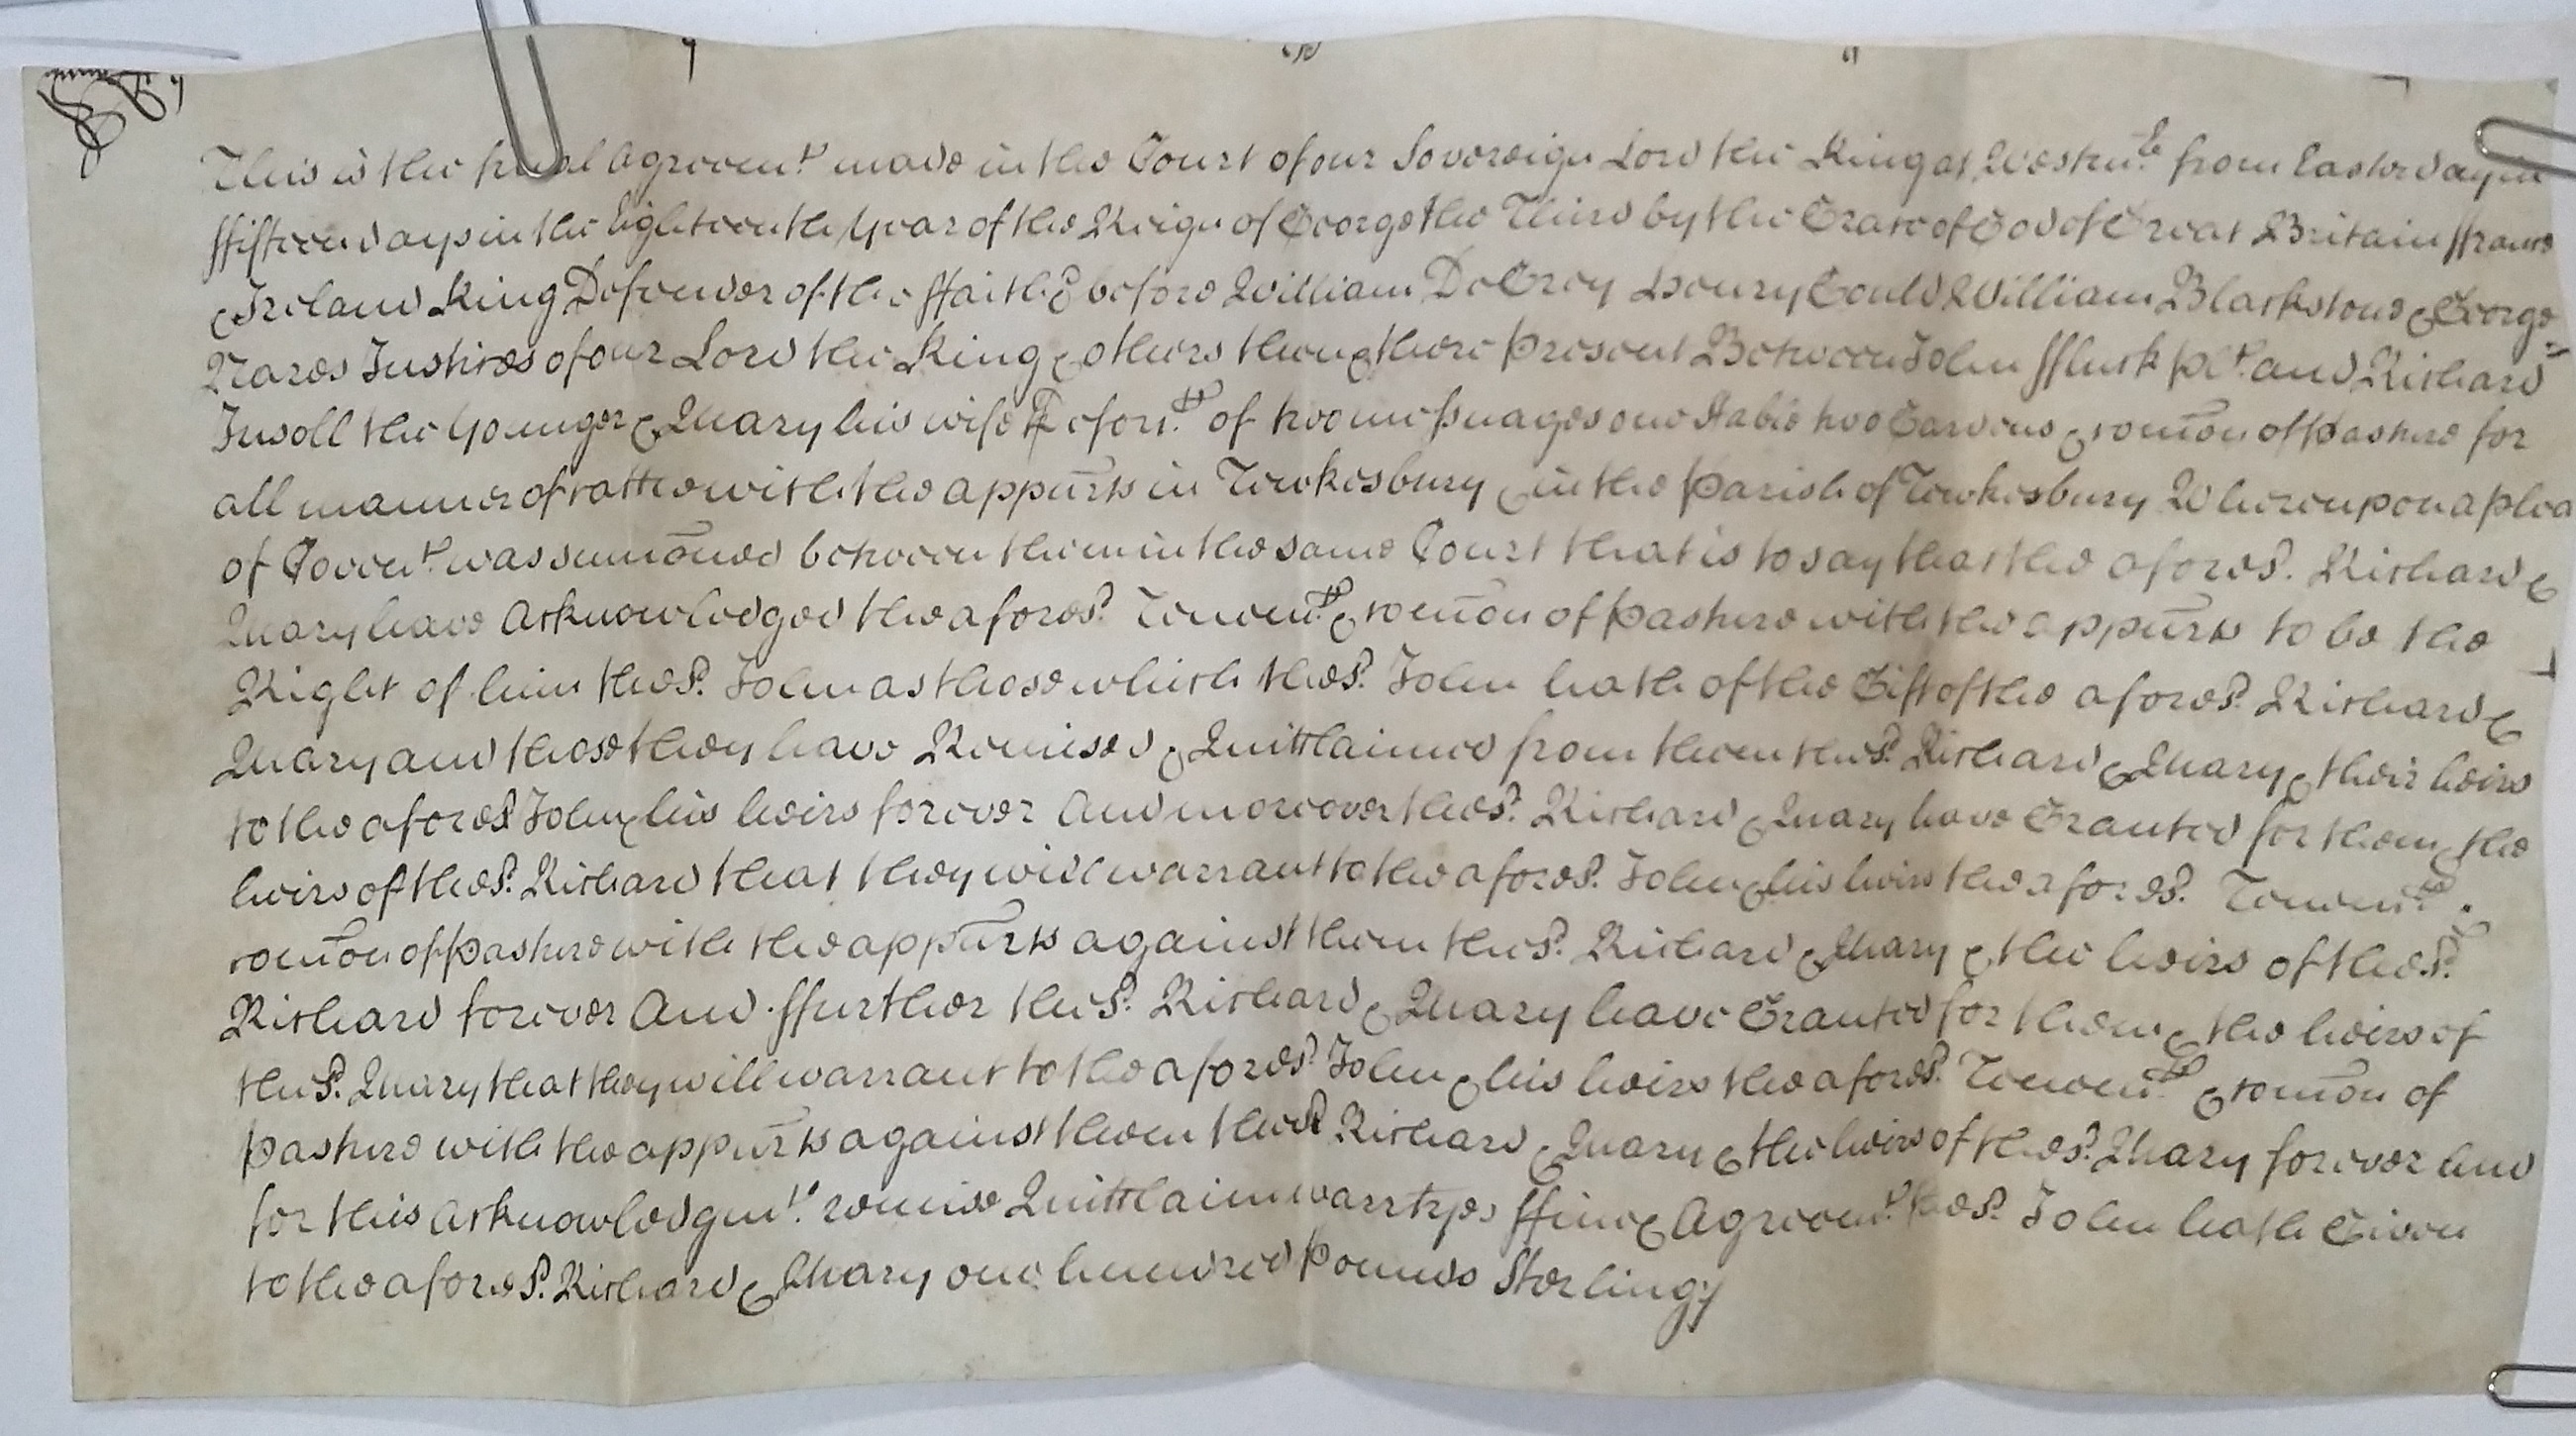 This is the final Agreemt. made in the Court of our Sovereign Lord the King at Westmr. from Easter day in
ffifteen days in the Eighteenth Year of the Reign of George the Third by the Grace of God of Great Britain ffrance
& Ireland King Defender of the ffaith &c before William De Grey Henry Gould William Blackstone & George
Nares Justices of our Lord the King & others then & there Present Between John fflusk plt. and Richard
Insoll the Younger & Mary his wife Deforts. of two messuages one stable two Gardens & com̄on of Pasture for
all manner of cattle with the appurts in Tewkesbury & in the Parish of Tewkesbury Whereupon a plea
of Covent. was sum̄oned between them in the same Court that is to say that the aforesd. Richard &
Mary have Acknowledged the aforesd. Tenemts. & com̄on of Pasture with the appurts to be the
Right of him the sd. John as those which the sd. John hath of the Gift of the aforesd. Richard &
Mary and those they have Remised & Quitclaimed from them the sd. Richard & Mary & their heirs
to the aforesd. John & his heirs for ever And moreover the sd. Richard & Mary have Granted for them & the
heirs of the sd. Richard that they will warrant to the aforesd. John & his heirs the aforesd. Tenemts. &
com̄on of Pasture with the appurts against them the sd. Richard & Mary & the heirs of the sd.
Richard forever And ffurther the sd. Richard & Mary have Granted for them & the heirs of
the sd. Mary that they will warrant to the aforesd. John & his heirs the aforesd. Tenemts. & com̄on of
Pasture with the appurts against them the sd. Richard & Mary & the heirs of the sd. Mary for ever And
for this Acknowledgmt. remise Quitclaim warrtyes ffine & Agreemt. the sd. John hath Given
to the aforesd. Richard & Mary one hundred Pounds Sterling